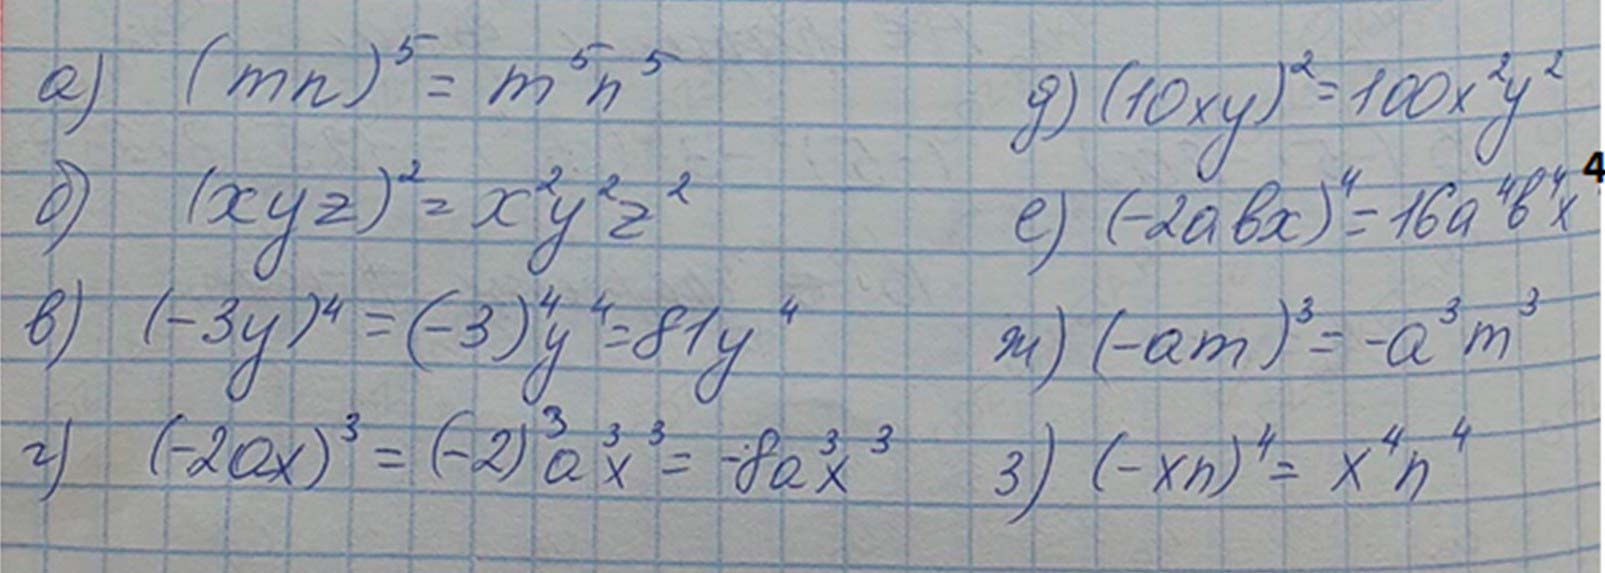 а) (mn)⁵ = m⁵n⁵
б) (xyz)² = x²y²z²
в) (-3y)⁴ = (-3)⁴y⁴ = 81y⁴
г) (-2ax)³ = (-2)³a³x³ = -8a³x³
д) (10xy)² = 100x²y²
е) (-2abx)⁴ = 16a⁴b⁴x⁴
ж) (-am)³ = -a³m³
з) (-xn)⁴ = x⁴n⁴